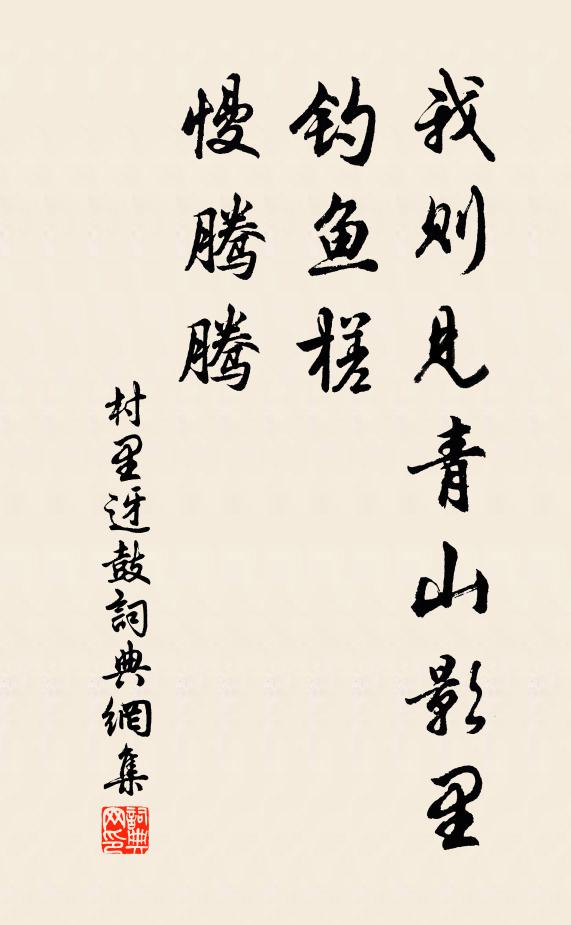 我则见青山影里
钓鱼槎
慢腾腾
村里迓鼓詞典網集
詞典网印